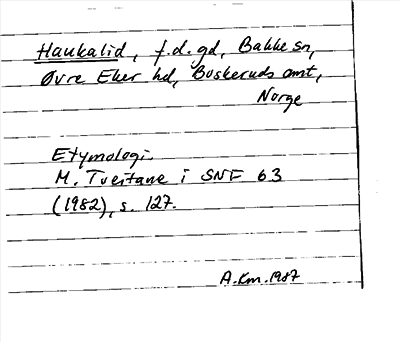 Haukalid, f.d. gd, Bakke sn,
Øvre Eker hd, Buskeruds amt,
Norge
Etymologi.
M. Tveitane i SNF 63
(1982), s. 127.
A.Km. 1987